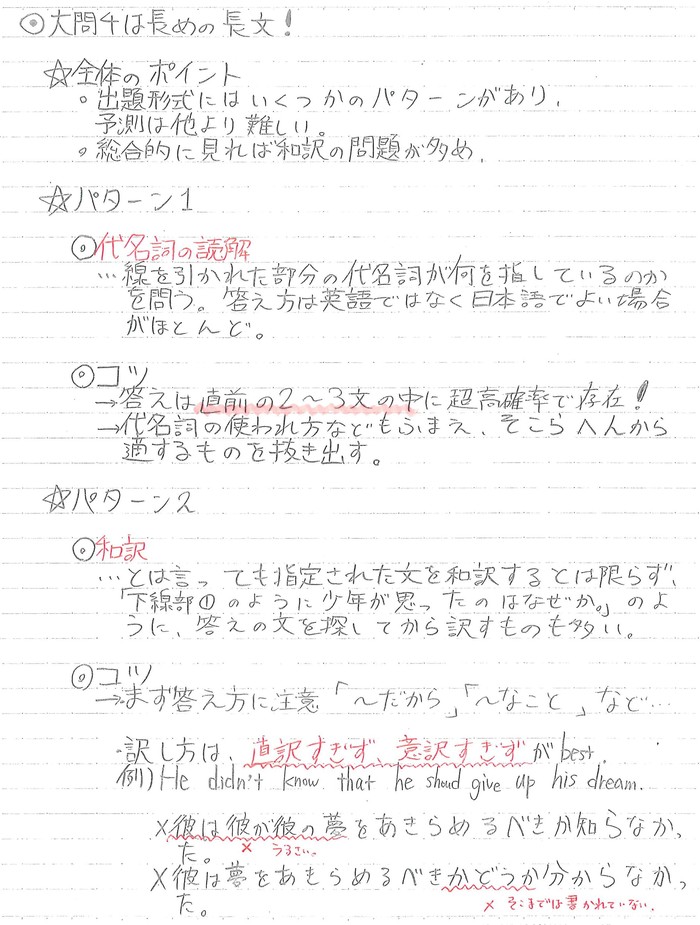 ◎大問4は長めの長文!
☆全体のポイント
。出題形式にはいくつかのパターンがあり、
予測は他より難しい。
。総合的に見れば和訳の問題が多め。
☆パターン1
◎代名詞の読解
…線を引かれた部分の代名詞が何を指しているのか
を問う。答え方は英語ではなく日本語でよい場合
がほとんど。
◎コツ
→答えは直前の2〜3文の中に超高確率で存在!
→代名詞の使われ方などもふまえ、そこらへんから
適するものを抜き出す。
☆パターン2
◎和訳
…とは言っても指定された文を和訳するとは限らず、
「下線部①のように少年が思ったのはなぜか。」のよ
うに、答えの文を探してから訳すものも多い。
◎コツ
→まず答え方に注意「〜だから」「〜なこと」など…
・訳し方は、直訳すぎず、意訳すぎずがbest.
例)He didn't know that he shoud give up his dream.
×彼は彼が彼の夢をあきらめるべきか知らなかっ
た。 × うるさい。
×彼は夢をあきらめるべきかどうか分からなかっ
た。 × そこまでは書かれていない。